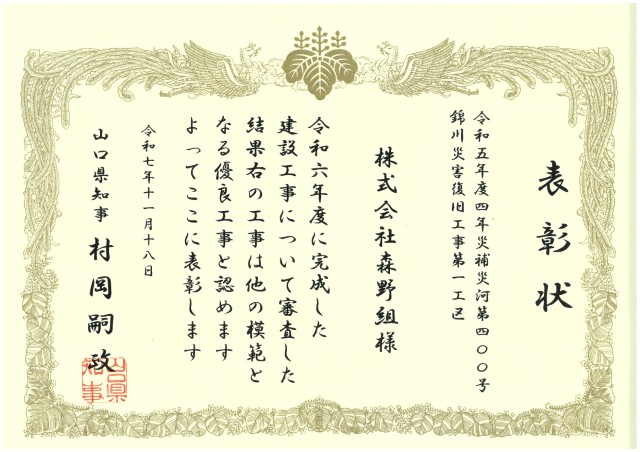 表彰状
令和五年度四年災補災河第四〇〇号
錦川災害復旧工事第一工区
株式会社森野組様
令和六年度に完成した
建設工事について審査した
結果右の工事は他の模範と
なる優良工事と認めます
よってここに表彰します
令和七年十一月十八日
山口県知事 村岡嗣政
山口県
知事